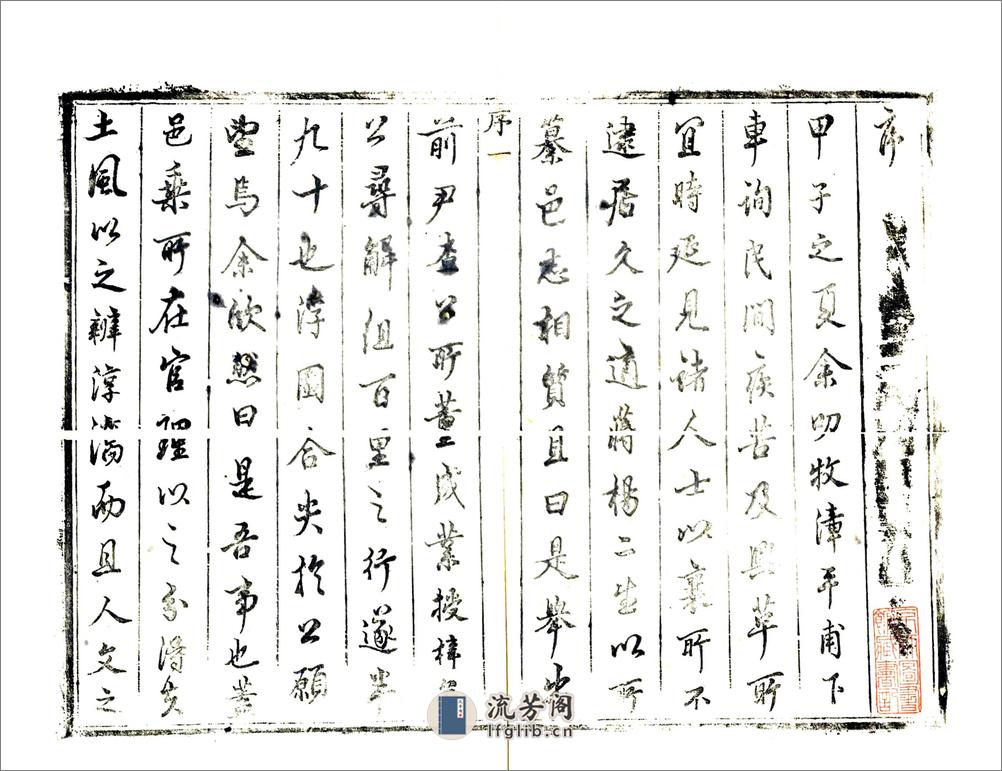 序
甲子之夏余叨牧漳平甫下
車詢民間疾苦及興革所
宜時延見諸人士以襄所不
逮居久之適蔣楊二生以所
纂邑志相質且曰是舉也
序一
前尹查公所董成業授梓
公尋解組百里之行遂半
九十也浮圖合尖於公願
望焉余欣然曰是吾事也蓋
邑乘所在官理以之分得失
土風以之辨淳漓而且人文之
流芳阁
lfglib.cn